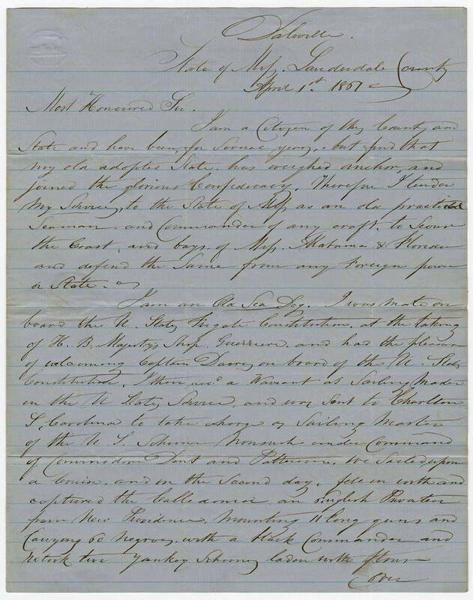 Daleville.
State of Miss. Lauderdale County
April 1st 1861
Most Honoured Sir.
I am a Citizen of this County and
State and have been for Several years, but find that
my old adopted State, has weighed anchor, and
joined the glorious Confederacy. Therefore I tender
my Services, to the State of Miss as an old practical
Seaman, and Commander of any craft, to Scour
the Coast, and bays of Miss. Alabama & Florida
and defend the Same from any Foreign power
or State.
I am an Old Sea Dog. I was mate on
board the U. States Frigate Constitution, at the taking
of H. B. Majestys Ship Guerriere, and had the pleasure
of welcoming Captain Dacres on board of the U. States
Constitution. I then a Warrant as Sailing Master
in the U States Service and was Sent to Charlton
S. Carolina to take charge as Sailing Master
of the U. S. Schooner Nonsuch under Command
of Commodore Dent and Patterson, we Sailed upon
a Cruise and in the Second day. fell in with and
captured the Calledonia an English Privateer
from New Providence, Mounting 11 long guns and
Carrying 60 Negroes, with a black Commander and
retook two Yankey Schooners laden with flour
Over